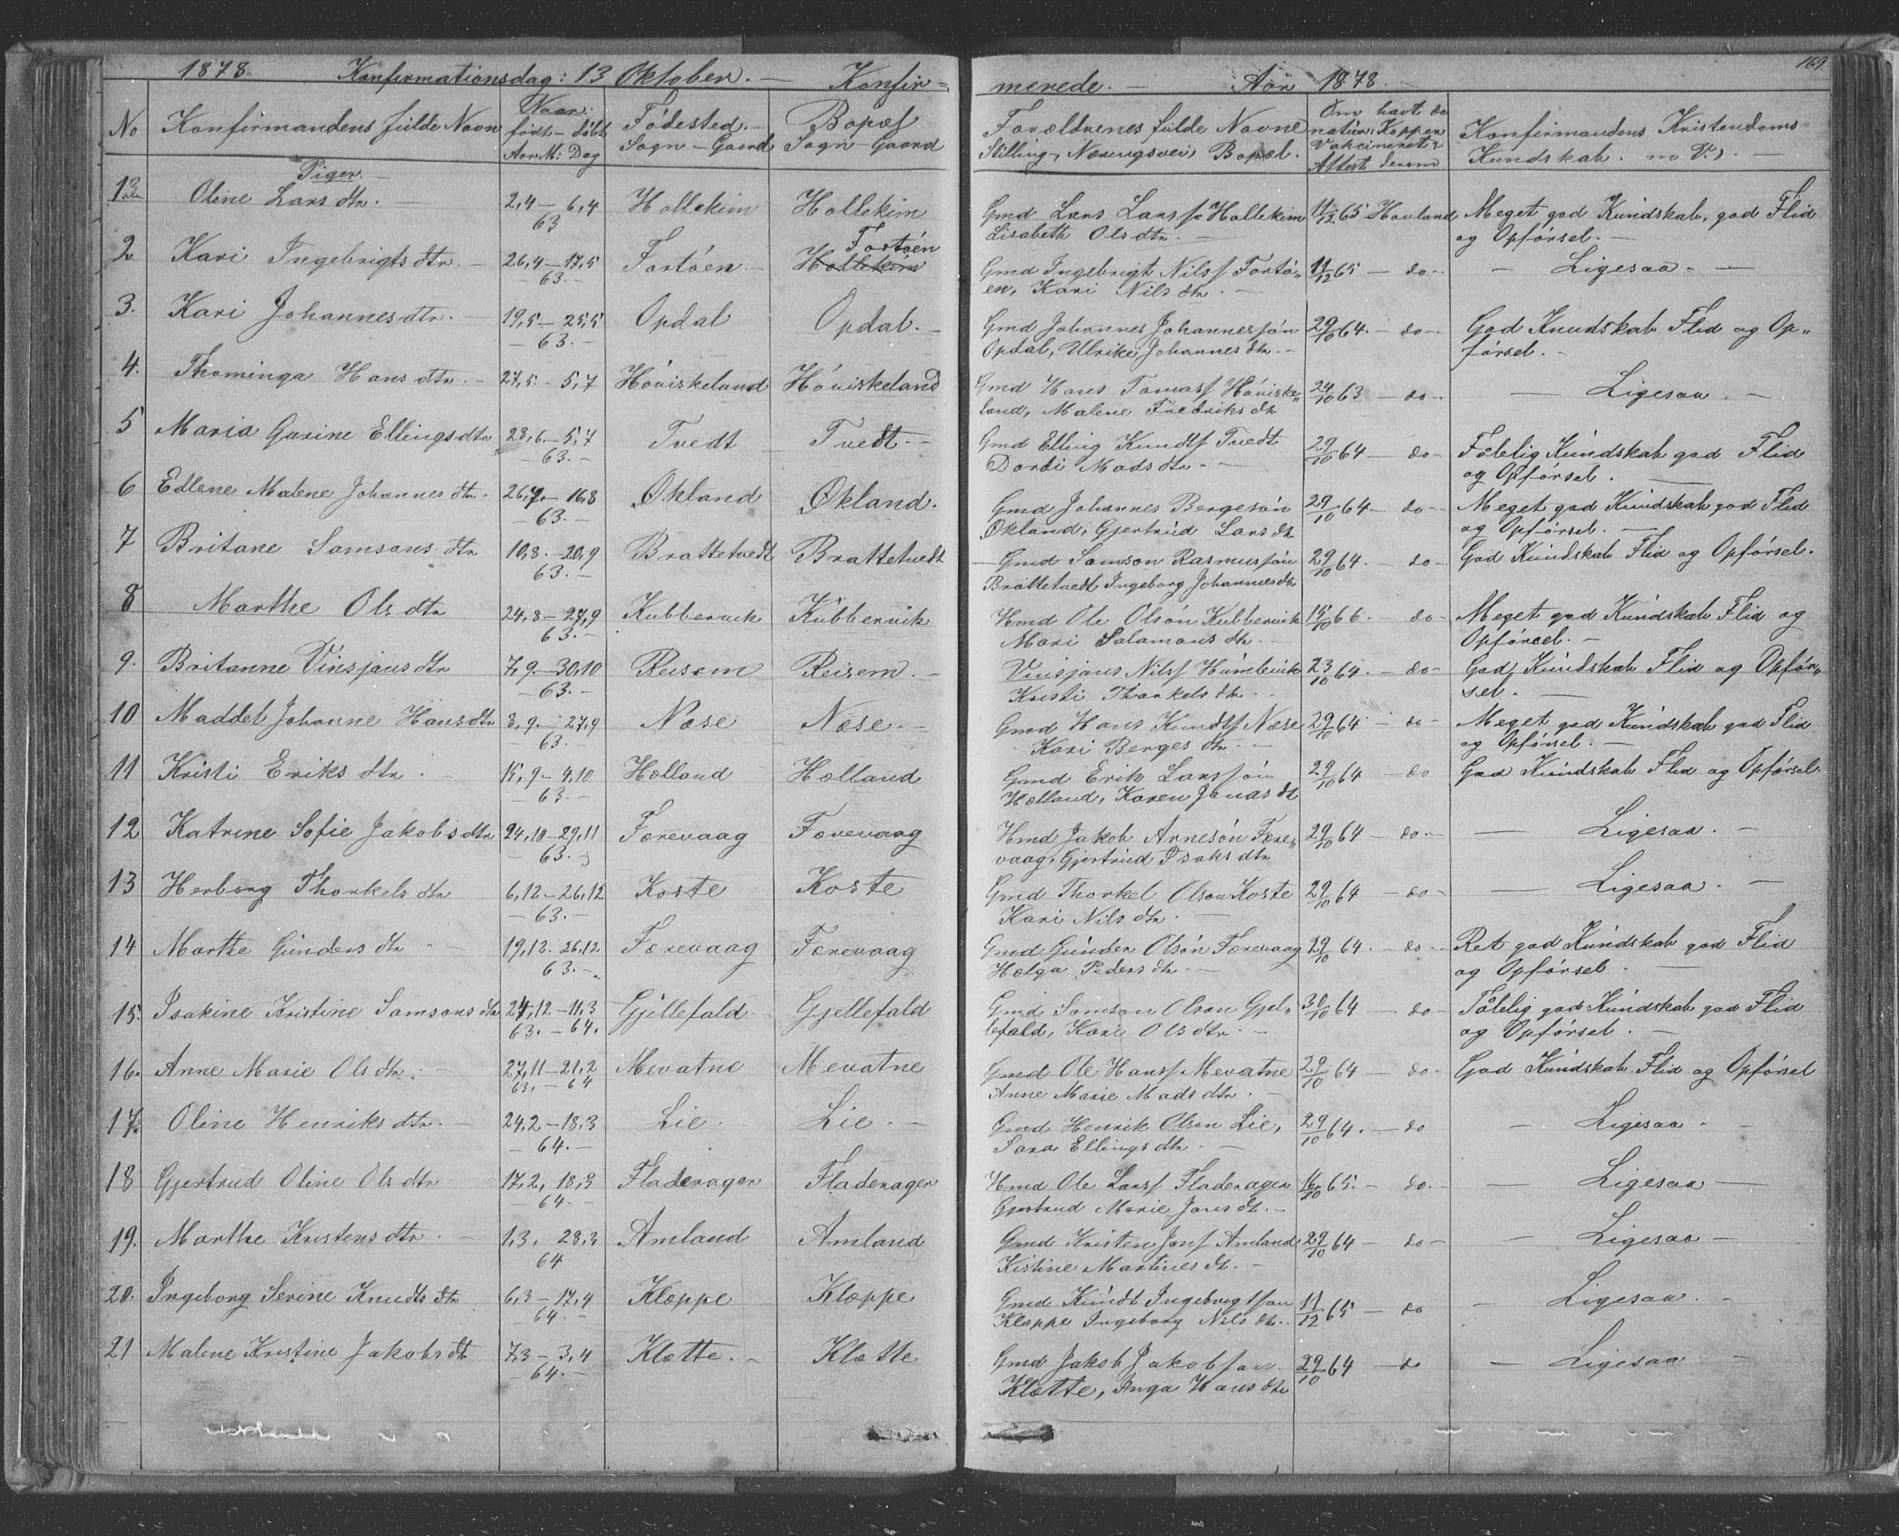 1878. Konfirmationsdag: 13 Oktober. — Konfir-
merede. — Aar 1878. 169
No Konfirmandens fulde Navn Naar: født — døbt Aar M: Dag Fødested. Sogn — Gaard Bopæl Sogn — Gaard Forældrenes fulde Navne Stilling, Næringsvei, Bopæl. Om havt de naturl: Kopper Vakcineret? Attest derom Konfirmandens Kristendoms Kundskab. m V.) —
Piger. —
1 Oline Larsdtr. — 2,4 — 6,4 63 Hollekim Hollekim Gmd Lars Larss Hollekim Lisabeth Olsdtr. — 11/12 65 Hovland Meget god Kundskab, god Flid og Opførsel. —
2 Kari Ingebrigtsdtr. — 26,4 — 17,5 63. — Fortøen — Fortøen Hollekim Gmd Ingebrigt Nilss Fortø- en, Kari Nilsdtr. — 11/12 65 — do — — Ligesaa. —
3. Kari Johannesdtr. — 19,5 — 25,5 63. — Opdal Opdal. — Gmd Johannes Johannessøn Opdal, Ulrike Johannesdtr. — 29/10 64. — do — God Knudskab Flid og Op- førsel. —
4. Thominga Hansdtr. — 27,5 — 5,7 Høviskeland Høviskeland Gmd Hans Tomass Høviske- land, Malene Fredriksdtr 24/10 63 — do — — Ligesaa. —
5 Maria Gurine Ellingsdtr 23,6 — 5,7 63. — Tvedt Tvedt. — Gmd Elling Knudts Tvedt Dordi Madsdtr. — 29/10 64 — do — Tålelig Kundskab god Flid og Opførsel. —
6 Edlene Malene Johannesdtr. 26,7 — 16,8 63. — Økland Økland. Gmd Johannes Bergesøn Økland, Gjertrud Larsdtr 29/10 64 — do — Meget god Kundskab god Flid og Opførsel. —
7 Britane Samsonsdtr 10,8. — 20,9 63. — Brattetvedt Brattetvedt — Gmd Samson Rasmussøn Brattetvedt Ingeborg Johannesdtr 29/10 64. — do — God Kundskab Flid og Opførsel.
8 Marthe Olsdtr 24,8 — 27,9 63. — Kubbervik Kubbervik Hmd Ole Olsøn Kubbervik Mari Salamonsdtr. — 15/10 66. — do — Meget god Kundskab Flid og Opførsel. —
9. Britanne Vinsjansdtr 7,9 — 30,10 63. — Reisem Reisem. — Vinsjans Nilss Humlevik Kristi Thorkelsdtr. 23/10 64. — do — God Kundskab Flid og Opfør- sel. —
10 Maddel Johanne Hansdtr 8,9. — 27,9 63. — Næse Næse. — Gmd Hans Knudts Næse Kari Bergesdtr. — 29/10 64. — do — Meget god Kundskab god Flid og Opførsel. —
11 Kristi Eriksdtr. 15,9 — 4,10 63. — Hælland Hælland Gmd Erik Larssøn Hælland, Karen Jonasdtr 29/10 64 — do God Kundskab Flid og Opførsel.
12 Katrine Sofie Jakobsdtr 24,10 — 29,11 63. — Færevaag Færevaag Hmd Jakob Arnesøn Fære- vaag, Gjertrud Isaksdtr 29/10 64 — do. — — Ligesaa. —
13 Herborg Thorkelsdtr 6,12 — 26,12 — 63. — Koste Koste Gmd Thorkel Olson Koste Kari Nilsdtr. — 29/10 64 — do — — Ligesaa. —
14 Marthe Gundersdtr — 19,12. 26,12 63. — Færevaag Færevaag Gmd Gunder Olsøn Færevaag Hælga Pedersdtr. — 29/10 64. — do — Ret god Kundskab god Flid og Opførsel. —
15. Isakine Kristine Samsonsdtr 24,12 — 11,3 63. — 64. Gjellefald Gjellefald Gmd Samson Olson Gjel- lefald, Kari Olsdtr. — 30/10 64 — do — Tålelig god Kundskab god Flid og Opførsel. —
16. Anne Marie Olsdtr. — 27,11 — 21,2 63. — 64 Mevatne Mevatne Gmd Ole Hanss Mevatne Anne Marie Madsdtr. — 29/10 64 — do — God Kundskab Flid og Opførsel
17. Oline Henriksdtr. — 24,2 — 18,3 64. — Lie. Lie. — Gmd Henrik Olson Lie, Sara Ellingsdtr. — 29/10 64. — do — Ligesaa —
18 Gjertrud Oline Olsdtr 17,2, 18,3 64. — Fladerager Fladerager Hmd Ole Larss Fladerager Gjertrud Marie Jansdtr. — 16/10 65. — do. — — Ligesaa —
19. Marthe Kristensdtr. — 1,3, 28,3 64 Amland Amland Gmd Kristen Jans Amland Kistine Martinesdtr. — 29/10 64 — do — — Ligesaa —
20. Ingeborg Serine Knudtsdtr 6,3 — 17,4 64. — Kleppe Kleppe Gmd Knudt Ingebrigtson Kleppe Ingeborg Nilsdtr. 11/12 65 — do — Ligesaa. —
21 Malene Kristine Jakobsdtr 7,3 — 3,4 — 64. — Klætte. — Klætte Gmd Jakob Jakobson Klætte, Inga Hansdtr 29/10 64 — do — Ligesaa —